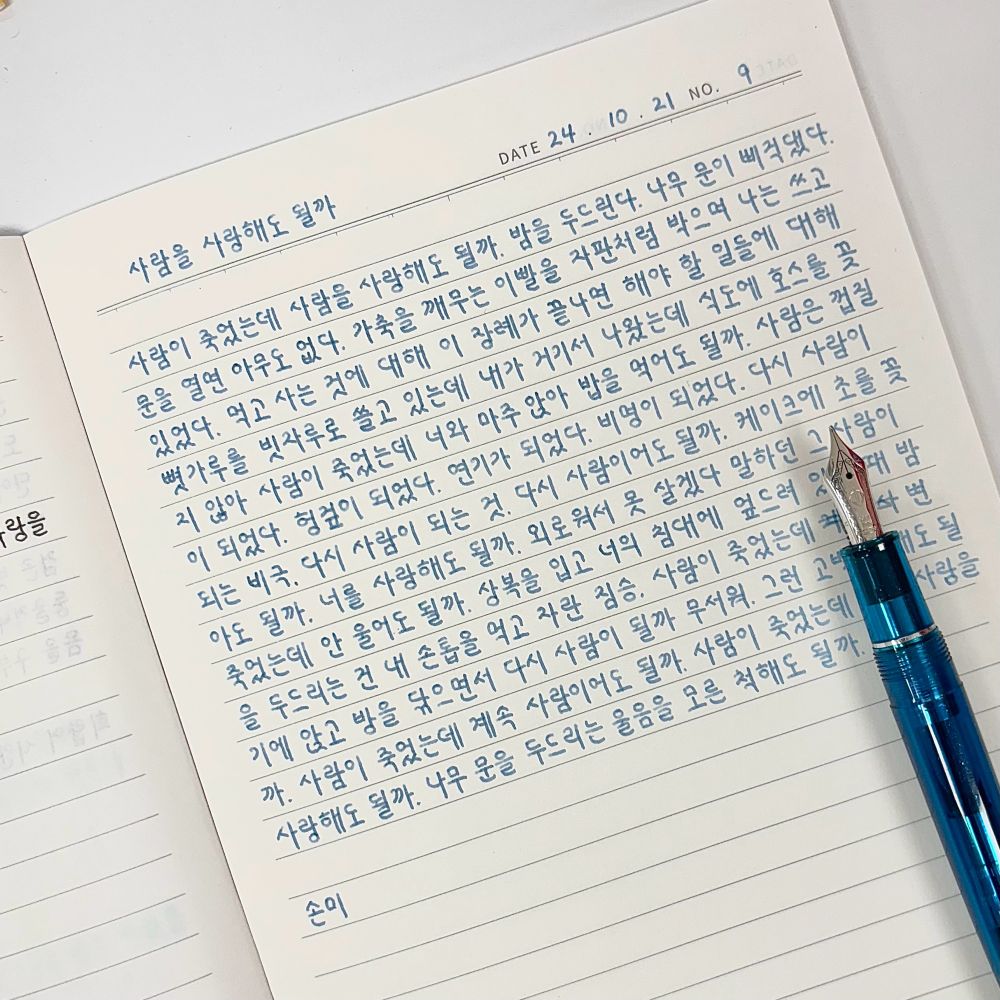 DATE 24 . 10 . 21 NO. 9
사람을 사랑해도 될까
사람이 죽었는데 사람을 사랑해도 될까. 밤을 두드린다. 나무 문이 삐걱댔다.
문을 열면 아무도 없다. 가축을 깨무는 이빨을 자판처럼 박으며 나는 쓰고
있었다. 먹고 사는 것에 대해 이 장례가 끝나면 해야 할 일들에 대해
뼛가루를 빗자루로 쓸고 있는데 내가 거기서 나왔는데 식도에 호스를 꽂
지 않아 사람이 죽었는데 너와 마주 앉아 밥을 먹어도 될까. 사람은 껍질
이 되었다. 헝겊이 되었다. 연기가 되었다. 비명이 되었다. 다시 사람이
되는 비극. 다시 사람이 되는 것. 다시 사람이어도 될까. 케이크에 초를 꽂
아도 될까. 너를 사랑해도 될까. 외로워서 못 살겠다 말하던 그 사람이
죽었는데 안 울어도 될까. 상복을 입고 너의 침대에 엎드려 밤
을 두드리는 건 내 손톱을 먹고 자란 짐승. 사람이 죽었는데 변
기에 앉고 방을 닦으면서 다시 사람이 될까 무서워. 그런 될
까. 사람이 죽었는데 계속 사람이어도 될까. 사람이 죽었는데 사람을
사랑해도 될까. 나무 문을 두드리는 울음을 모른 척해도 될까.
손미
사랑을